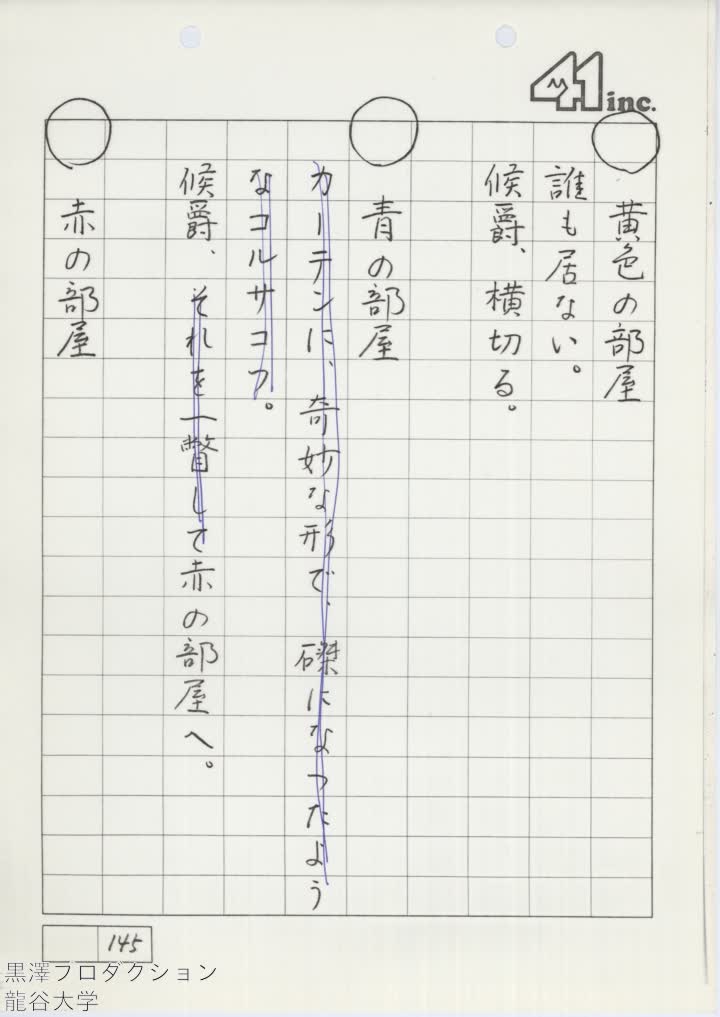 41 inc.
黄色の部屋
誰も居ない。
候爵、横切る。
青の部屋
カーテンに、奇妙な形で、磔になったよう
なコルサコフ。
候爵、それを一瞥して赤の部屋へ。
赤の部屋
145
黒澤プロダクション
龍谷大学